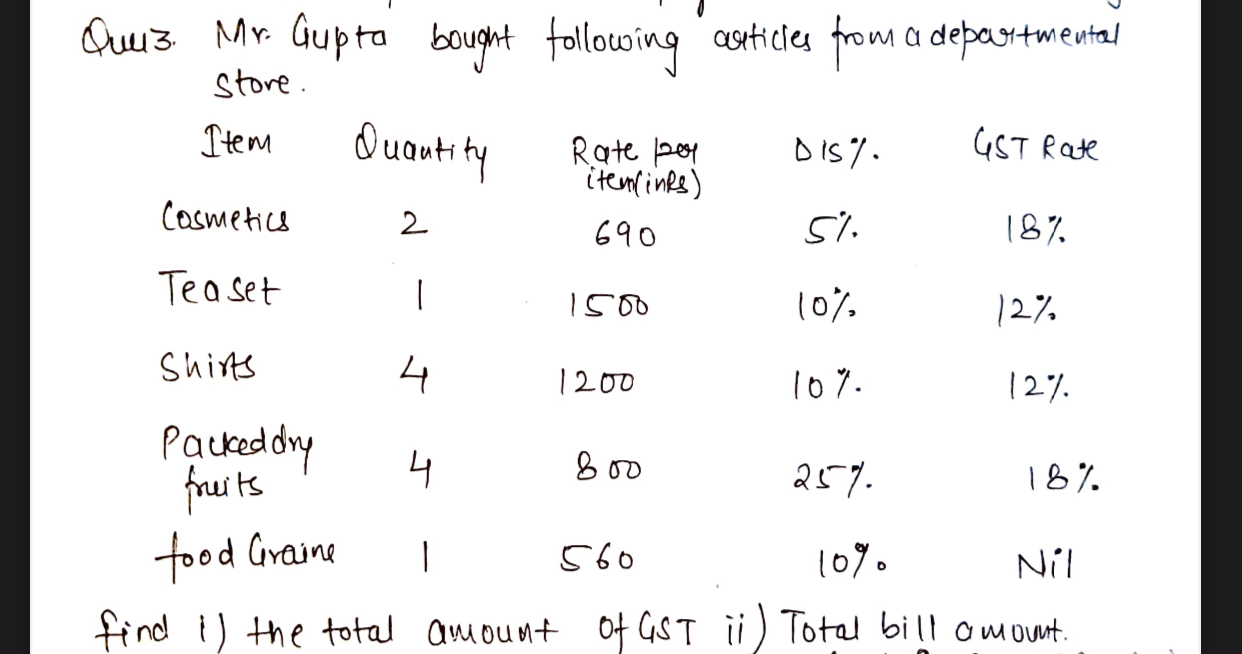 Ques3. Mr. Gupta bought following articles from a departmental
store.
Item Quantity Rate per DIS%. GST Rate
item(inRs)
Cosmetics 2 690 5%. 18%
Teaset 1 1500 10%. 12%
Shirts 4 1200 10%. 12%.
Packed dry
fruits 4 800 25%. 18%
food Grains 1 560 10%. Nil
find i) the total amount of GST ii) Total bill amount.